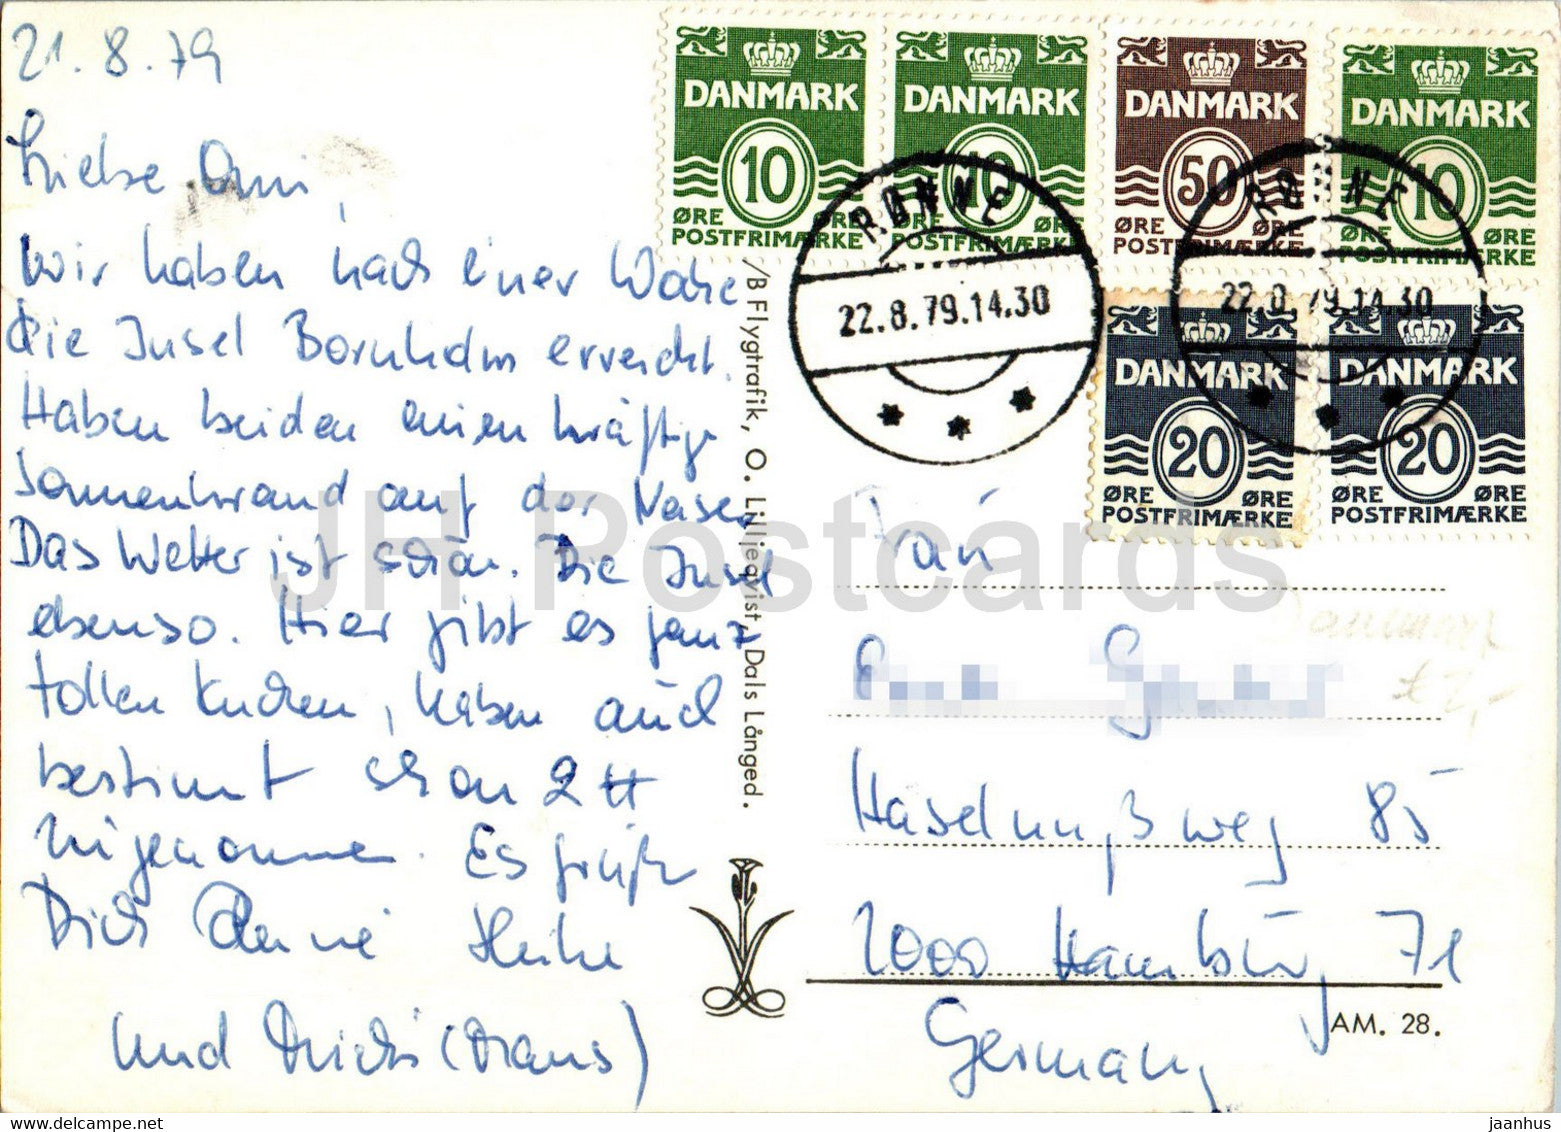 21.8.79
Liebe Omi,
Wir haben nach einer Woche
die Insel Bornholm erreicht.
Haben beiden einen kräftige
Sonnenbrand auf der Nase.
Das Wetter ist schön. Die Insel
ebenso. Hier gibt es ganz
tollen Kuchen, haben auch
bestimmt schon 2 tt
zugenommen. Es grüßt
Dich Deine Heike
und
DANMARK
10
ØRE ØRE
POSTFRIMÆRKE
DANMARK
10
ØRE ØRE
POSTFRIMÆRKE
DANMARK
50
ØRE ØRE
POSTFRIMÆRKE
DANMARK
10
ØRE ØRE
POSTFRIMÆRKE
DANMARK
20
ØRE ØRE
POSTFRIMÆRKE
DANMARK
20
ØRE ØRE
POSTFRIMÆRKE
RØNNE
22.8.79.14.30
RØNNE
22.8.79.14.30
/B Flygtrafik, O. Lilljeqvist, Dals Långed.
Frau
Haselnußweg 85
2000 Hamburg 71
Germany
AM. 28.
JH Postcards
www.delcampe.net
jaanhus